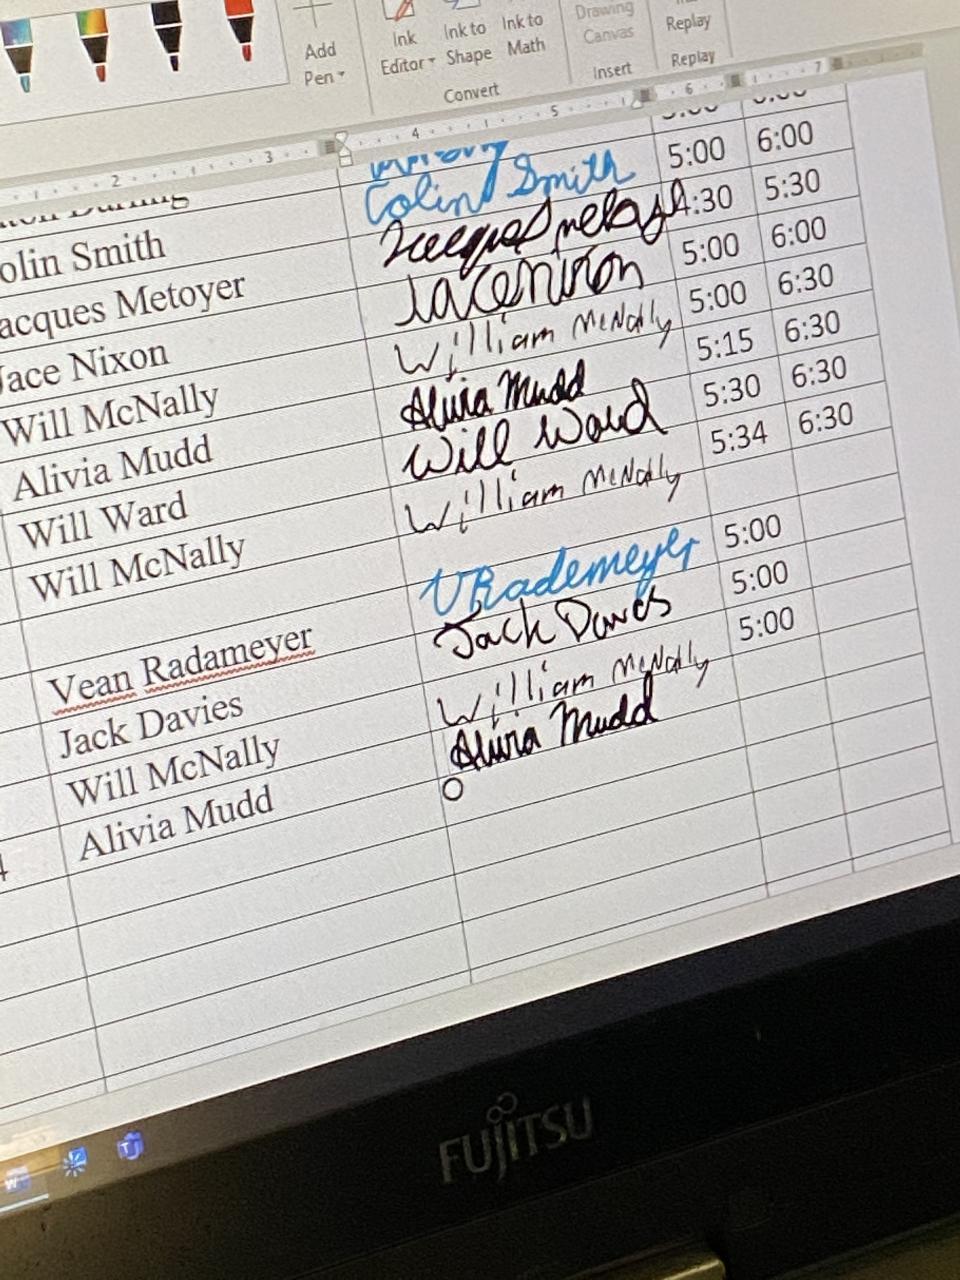 Add
Pen
Ink
Editor
Ink to
Shape
Ink to
Math
Convert
Drawing
Canvas
Insert
Replay
Replay
2 3 4 5 6 7
olin Smith Colin Smith 5:00 6:00
acques Metoyer 4:30 5:30
Jace Nixon Jace Nixon 5:00 6:00
Will McNally William McNally 5:00 6:30
Alivia Mudd Alivia Mudd 5:15 6:30
Will Ward Will Ward 5:30 6:30
Will McNally William McNally 5:34 6:30
Vean Radameyer VRademeyer 5:00
Jack Davies Jack Davies 5:00
Will McNally William McNally 5:00
Alivia Mudd Alivia Mudd
FUJITSU